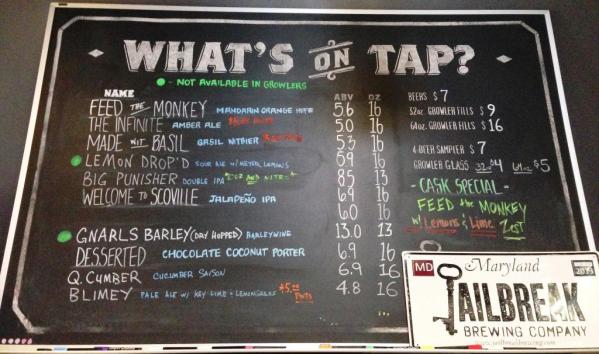 WHAT'S ON TAP?
- NOT AVAILABLE IN GROWLERS
NAME ABV OZ
FEED THE MONKEY MANDARIN ORANGE HEFE 5.6 16
THE INFINITE AMBER ALE 5.0 16
MADE WIT BASIL BASIL WITBIER 5.3 16
LEMON DROP'D SOUR ALE W/ MEYER LEMONS 5.9 16
BIG PUNISHER DOUBLE IPA CO2 AND NITRO 8.5 13
WELCOME TO SCOVILLE JALAPEÑO IPA 6.9 16
6.0 16
GNARLS BARLEY (DRY HOPPED) BARLEYWINE 13.0 13
DESSERTED CHOCOLATE COCONUT PORTER 6.9 16
Q. CUMBER CUCUMBER SAISON 6.9 16
BLIMEY PALE ALE W/ KEY LIME & LEMONGRASS $5.00 PINTS 4.8 16
BEERS $7
32oz. GROWLER FILLS $9
64oz. GROWLER FILLS $16
4-BEER SAMPLER $7
GROWLER GLASS 32oz $4 64oz $5
- CASK SPECIAL -
FEED THE MONKEY
W/ Lemons & Lime Zest
MD Maryland 2015
JAILBREAK
BREWING COMPANY
www.jailbreakbrewing.com